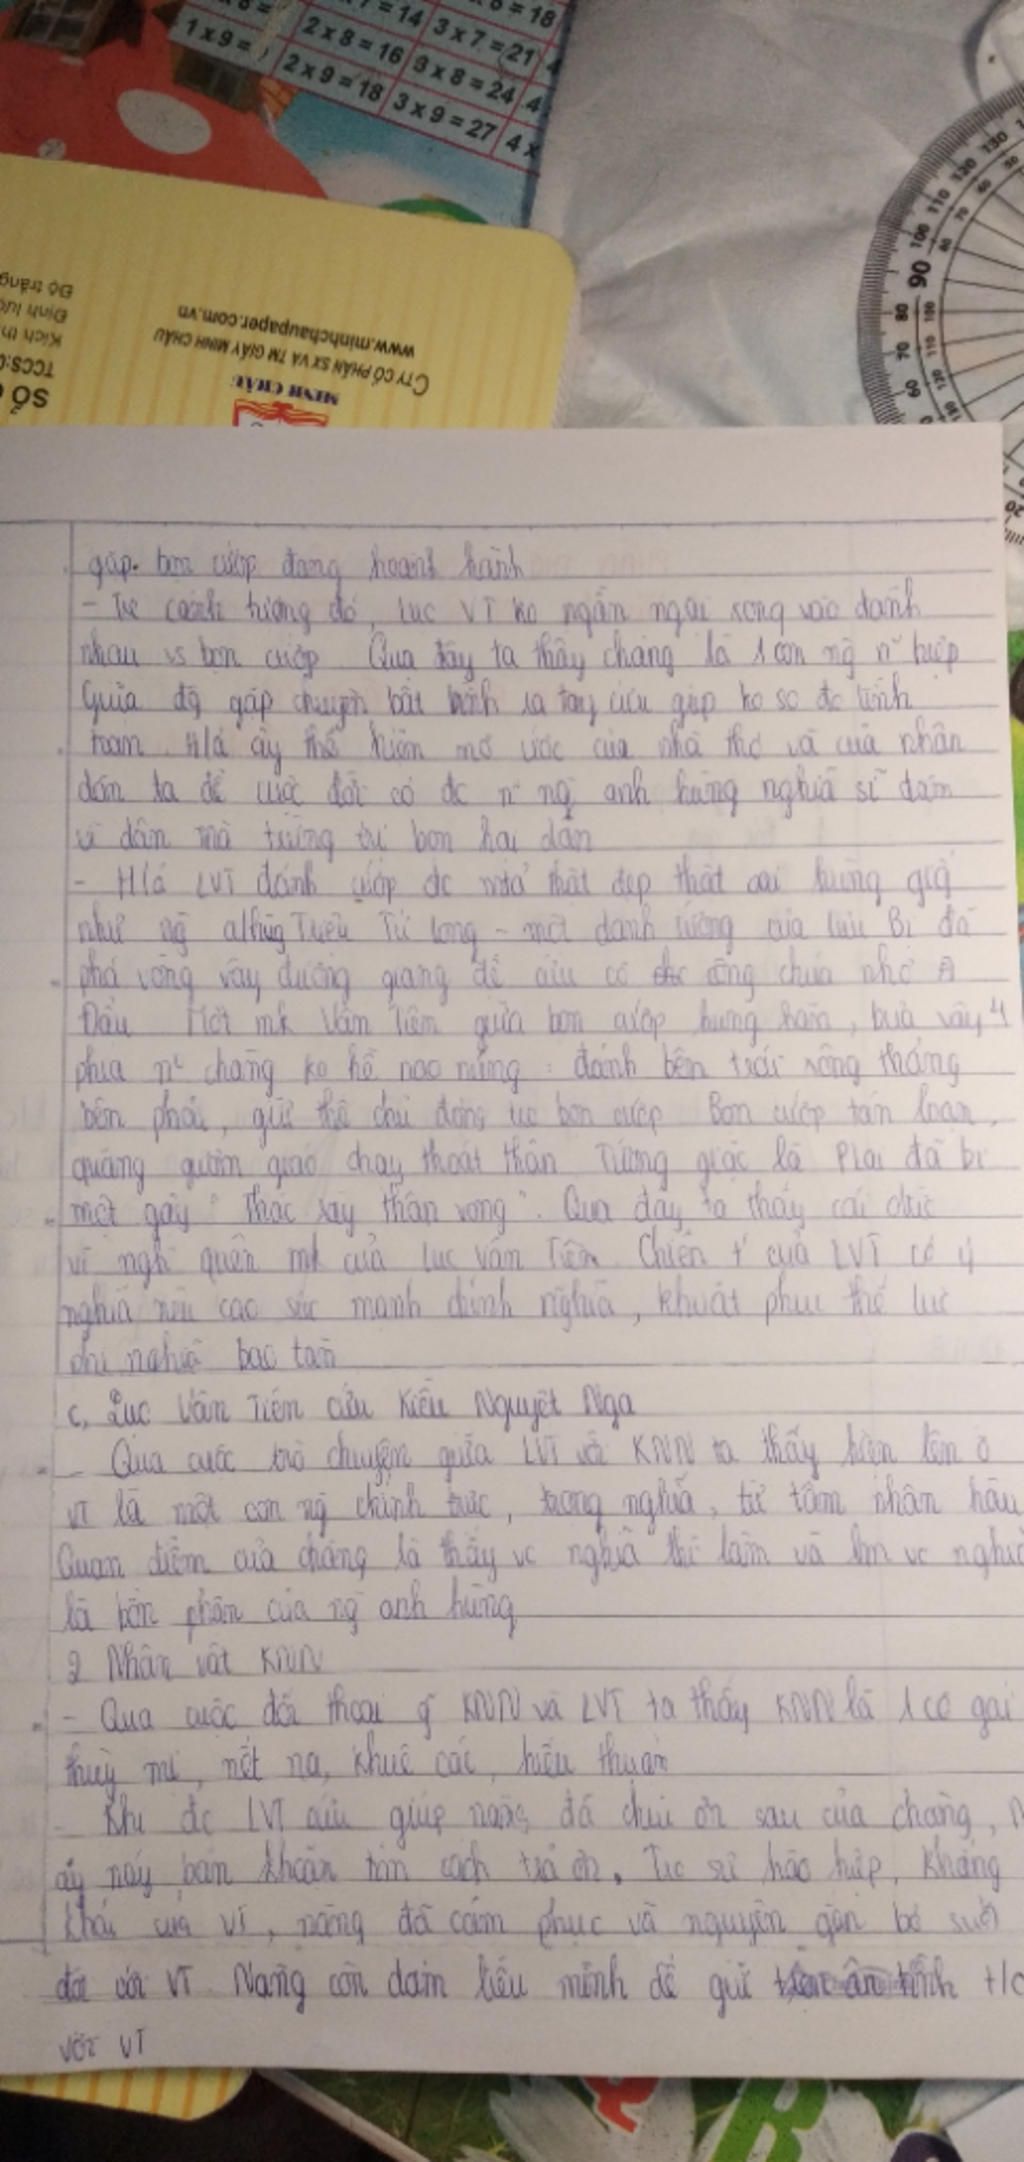 x 7 = 14
x 8 = 18
1 x 9 =
2 x 8 = 16
3 x 7 = 21
4
2 x 9 = 18
3 x 8 = 24
4
3 x 9 = 27
4 x
130
120
110
100
90
80
70
60
www.minhchaupaper.com.vn
CTY CỔ PHẦN SX VÀ TM GIẤY MINH CHÂU
MINH CHÂU
Độ trắng
Định lượ
Kích th
TCCS:0
SỐ
gặp. bọn cướp đang hoành hành
- Tc cảnh tượng đó, Lục VT ko ngần ngại xông vào đánh
nhau vs bọn cướp Qua đây ta thấy chàng là 1 con ng n~ hiệp
Giữa đg gặp chuyện bất bình ra tay cứu giúp ko so đo tính
toan. Hđ ấy thể hiện mơ ước của nhà thơ và của nhân
dân ta để cuộc đời có đc n~ ng anh hùng nghĩa sĩ dám
vì dân mà trừng trị bọn hại dân
- H/ả LVT đánh cướp đc mtả thật đẹp thật oai hùng giố
như ng a/hùg Triệu Tử Long - một danh tướng của Lưu Bị đã
phá vòng vây đương giang để cứu cô công chúa nhỏ A
Đẩu Một mk Vân Tiên giữa bọn cướp hung hãn, bủa vây 4
phía n' chàng ko hề nao núng : đánh bên trái xông thẳng
bên phải, giữ thế chủ động tc bọn cướp Bọn cướp tán loạn,
quăng gươm giáo chạy thoát thân Tướng giặc là P lai đã bị
một gậy " thác rày thân vong". Qua đây ta thấy cái đức
vì nghĩ quên mk của Lục Vân Tiên. Chiến t' của LVT có ý
nghĩa nêu cao sức mạnh chính nghĩa, khuất phục thế lực
phi nghĩa bạo tàn
c, Lục Vân Tiên cứu Kiều Nguyệt Nga
- Qua cuộc trò chuyện giữa LVT với KNN ta thấy hiện lên ở
VT là một con ng chính trực, trọng nghĩa, từ tâm nhân hậu
Quan điểm của chàng là thấy vc nghĩa thì làm và lm vc nghĩa
là bổn phận của ng anh hùng
2 Nhân vật KNN
- Qua cuộc đối thoại g~ KNN và LVT ta thấy KNN là 1 cô gái
thuỳ mị, nết na, khuê các, hiếu thuận
- Khi đc LVT cứu giúp nàng đã chịu ơn sau của chàng, N
áy náy băn khoăn tìm cách trả ơn. Tc sự hào hiệp, khảng
khái của VT, nàng đã cảm phục và nguyện gắn bó suốt
đời với VT Nàng còn dám liều mình để giữ tình t/c
với VT